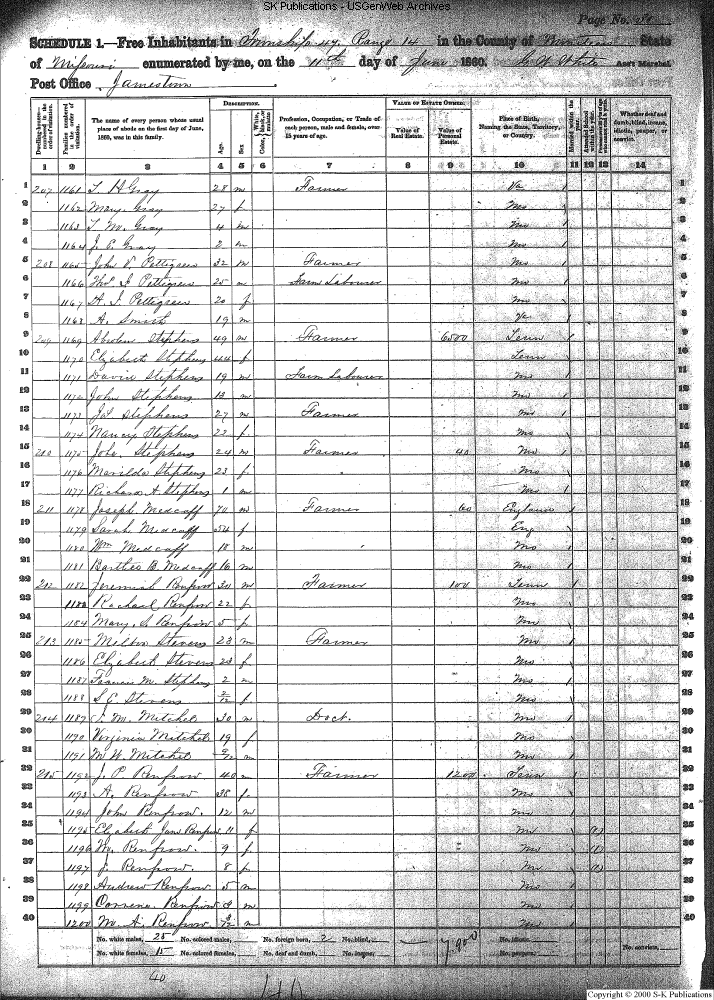 SK Publications - USGenWeb Archives
Page No.
SCHEDULE 1.—Free Inhabitants in Township 47 Range 14 in the County of Moniteau State
of Missouri enumerated by me, on the 11th day of June 1860. White Ass't Marshal.
Post Office Jamestown
Dwelling-houses—numbered in the order of visitation.
Families numbered in the order of visitation.
The name of every person whose usual place of abode on the first day of June, 1860, was in this family.
DESCRIPTION.
Age.
Sex.
Color, White, black, or mulatto.
Profession, Occupation, or Trade of each person, male and female, over 15 years of age.
VALUE OF ESTATE OWNED.
Value of Real Estate.
Value of Personal Estate.
Place of Birth, Naming the State, Territory, or Country.
Married within the year.
Attended School within the year.
Whether deaf and dumb, blind, insane, idiotic, pauper, or convict.
1 2 3 4 5 6 7 8 9 10 11 12 13 14
1 207 1161 T. H Gray 28 m Farmer Va / 1
2 1162 Mary Gray 27 f Mo 2
3 1163 T. M. Gray 4 m Mo 3
4 1164 J. P. Gray 2 m Mo 4
5 208 1165 John V Pettigrew 32 m Farmer Mo 5
6 1166 Thos J Pettigrew 25 m Farm Labourer Mo 6
7 1167 H. J Pettigrew 20 f Mo 7
8 1168 A. Smith 19 m Va 8
9 209 1169 Stephens 49 m Farmer 6500 Tenn 9
10 1170 Elizabeth Stephens 44 f Tenn 10
11 1171 David Stephens 19 m Farm Labourer Mo 11
12 1172 John Stephens 13 m Mo 12
13 1173 Jos Stephens 27 m Farmer Mo 13
14 1174 Nancy Stephens 23 f Mo 14
15 210 1175 John. Stephens 24 m Farmer 40 Mo 15
16 1176 Marilda Stephens 23 f Mo 16
17 1177 Richard A Stephens 1 m Mo 17
18 211 1178 Joseph Medcaff 70 m Farmer 60 England 18
19 1179 Sarah Medcaff 54 f Eng 19
20 1180 Wm Medcaff 18 m Mo 20
21 1181 B. Medcaff 16 m Mo 21
22 212 1182 Jeremiah Renfrow 30 m Farmer 100 Tenn 22
23 1183 Rachael Renfrow 22 f Mo 23
24 1184 Mary. S Renfrow 5 f Mo 24
25 213 1185 Milton Stevens 23 m Farmer Mo 25
26 1186 Elizabeth Stevens 23 f Mo 26
27 1187 Francis M. Stephens 2 m Mo 27
28 1188 S. E Stevens 2/12 f Mo 28
29 214 1189 M. Mitchel 30 m Doct. Mo 29
30 1190 Virginia Mitchel 19 f Mo 30
31 1191 M W. Mitchel 2/12 m Mo 31
32 215 1192 J. P Renfrow 40 m Farmer 1200 Tenn 32
33 1193 A. Renfrow 38 f Mo 33
34 1194 John Renfrow. 12 m Mo 34
35 1195 Elizabeth Jane Renfrow 11 f Mo (1) 35
36 1196 M. Renfrow. 9 f Mo (1) 36
37 1197 J. Renfrow. 8 f Mo (1) 37
38 1198 Andrew Renfrow 5 m Mo 38
39 1199 Renfrow m Mo 39
40 1200 W. A. Renfrow m Mo 40
No. white males, 25 No. colored males, No. foreign born, 2 No. blind, 7,900 No. idiotic,
No. white females, 15 No. colored females, No. deaf and dumb, No. insane, No. paupers, No. convicts,
40
140
Copyright © 2000 S-K Publications